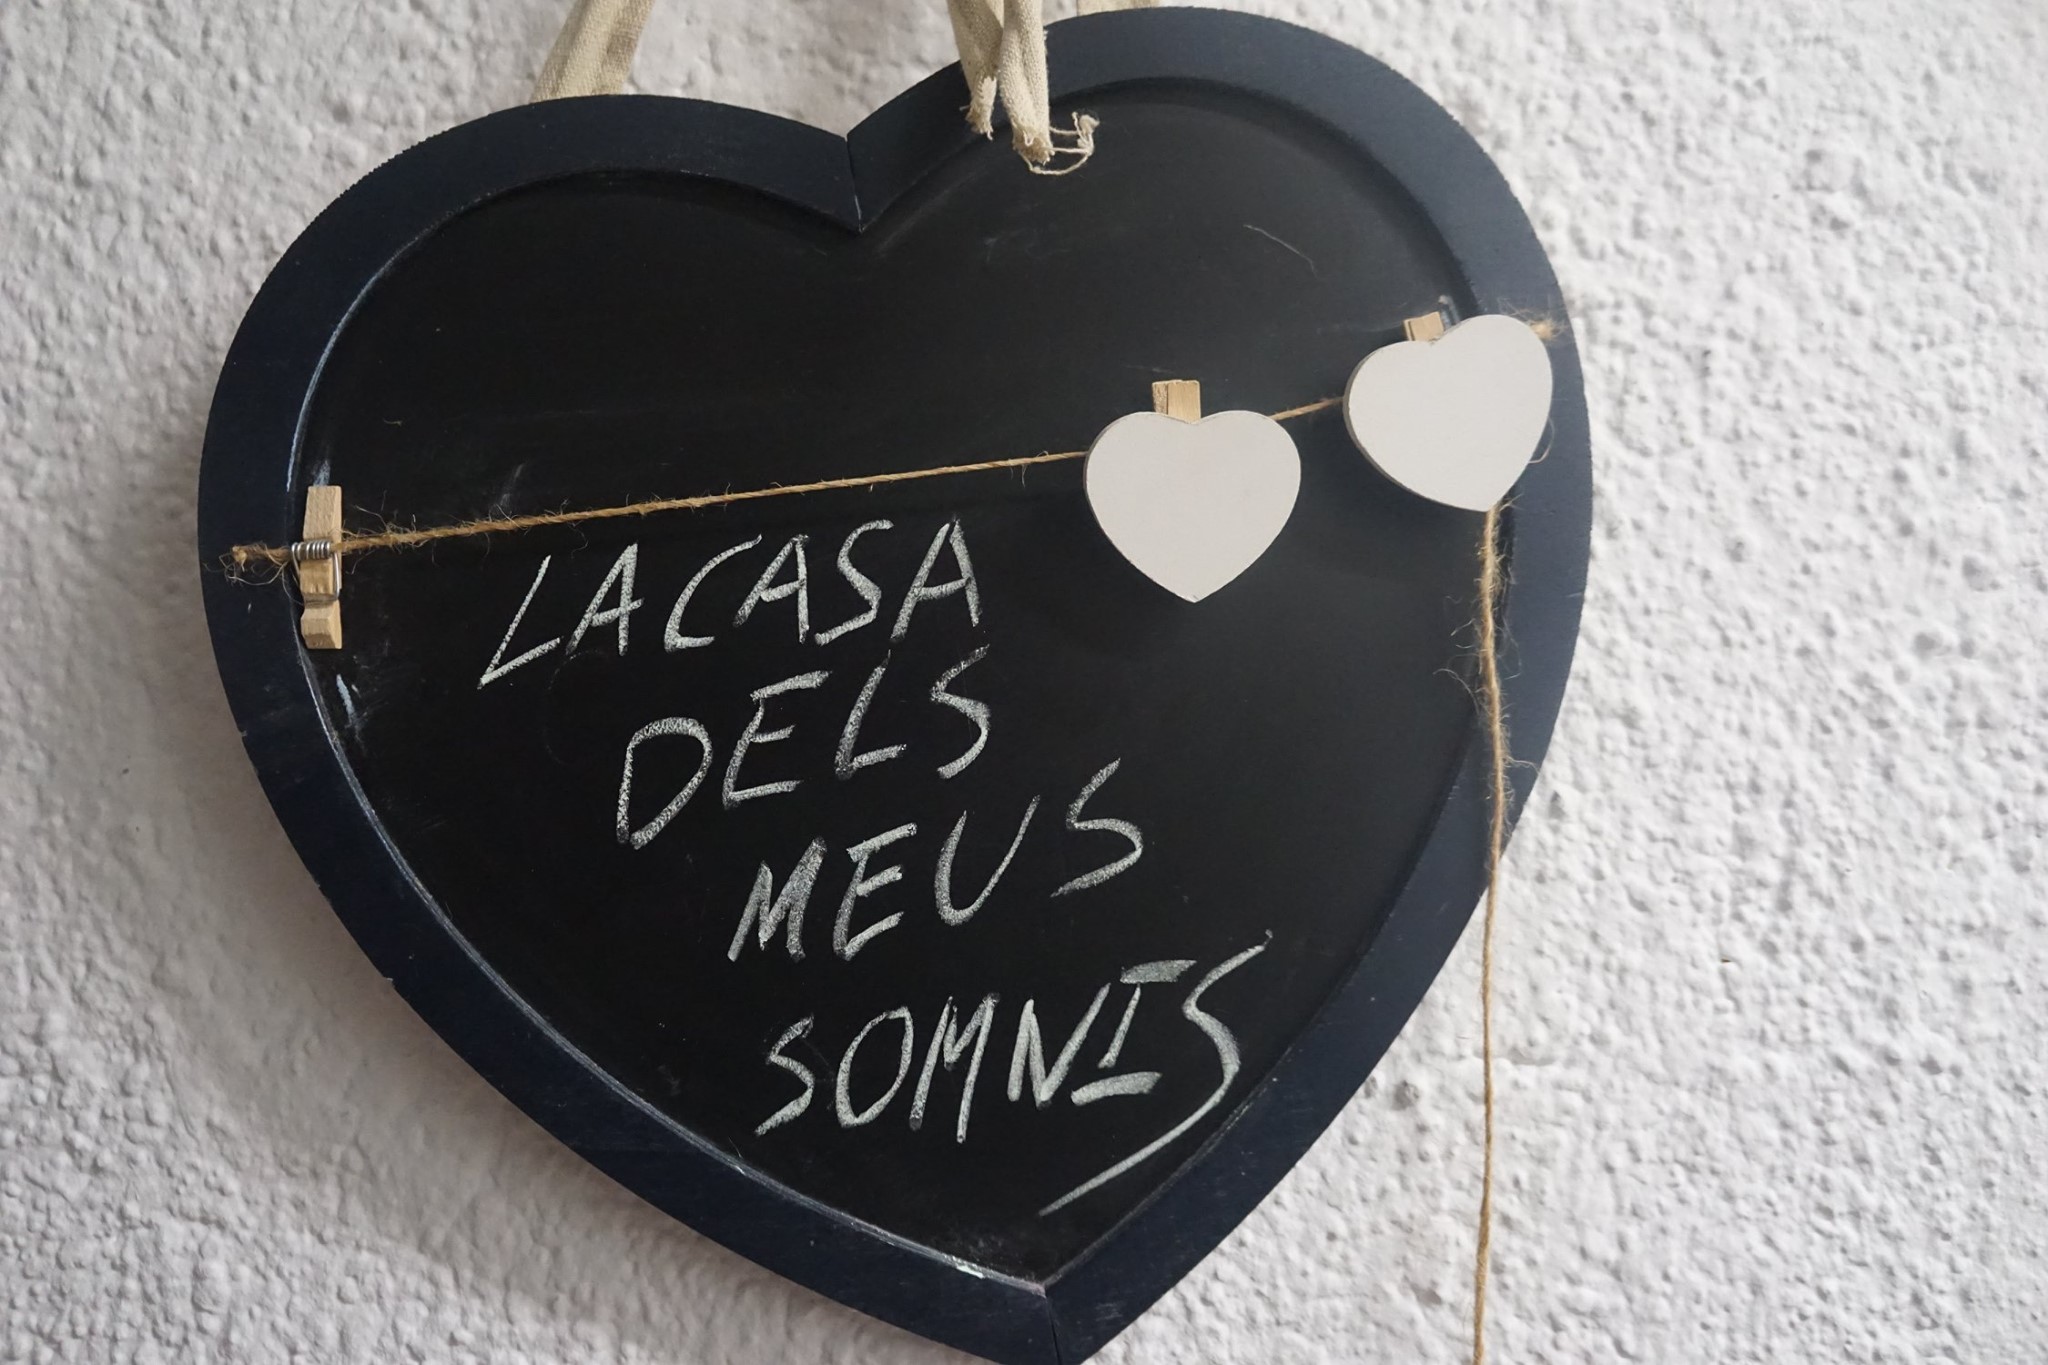 LA CASA
DELS
MEUS
SOMNIS